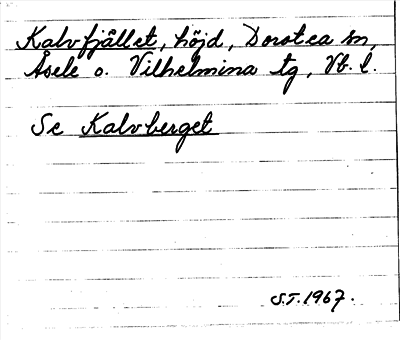 Kalvfjället, höjd, Dorotea sn,
Åsele o. Vilhelmina tg, Vb. l.
Se Kalvberget
S.T. 1967.